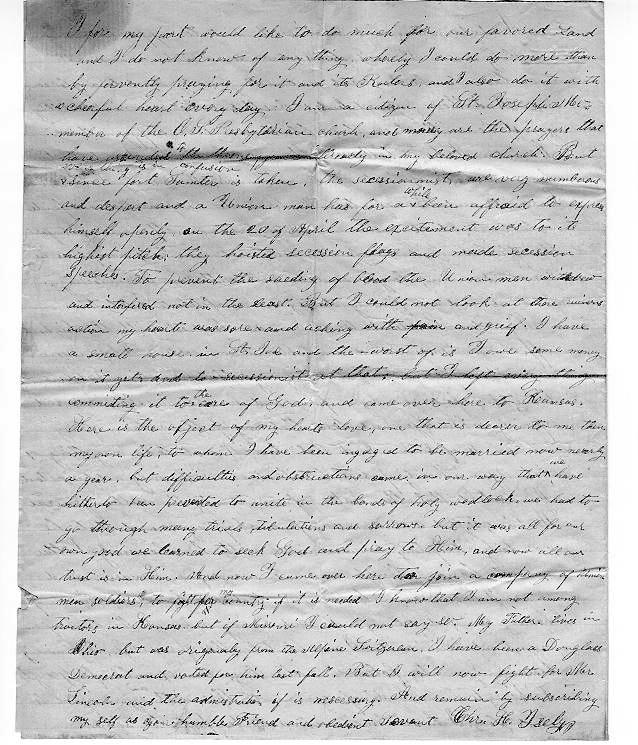 I for my part would like to do much for our favored Land
and I do not know of any thing whereby I could do more than
by fervently praying for it and its Rulers, and I also do it with
a cheerful heart every day. I am a citizen of St. Joseph Mo-
member of the O. S. Presbyterian church, and many are the prayers that
have ascended to the already in my beloved church. But
is confusion
since fort Sumter is taken, the secessionist are very numberous
and despert and a Union man has for a while affraid to express
himself openly, on the 20 of April the excitement was to its
highest pitch; they hoisted secession flags and made secession
speeches. To prevent the sheding of blood the Union men withdrew
and interfered not in the least. But I could not look at there
action my heart was sore and acking with pain and grief. I have
a small house in St. Joe and the worst of is I owe some money
on it yet, and to a secessionist at that, but I left every thing
commiting it to the care of God, and came over here to Kansas.
Here is the object of my hearts love, one that is dearer to me then
my own life, to whom I have been ingaged to be married now nearly
a years, but difficulties and obstructions came in our way that we have
hitherto been prevented to unite in the bonds of holy wedlock, we had to
go through many trials, tribulations and sorrows. but it was all for our
own good we learned to seek God and pray to Him, and now all our
trust is in Him. And now I came over here to join a company of Union
men soldiers, to fight for my country if it is needed I know that I am not among
traitors in Kansas but if Missouri I could not say so. My Father lives in
Ohio but was originaly from Switzerlan. I have been a Douglass
Democrat and voted for him last fall. But I will now fight for Mr
Lincoln and the administration if is nescessing. And remain by subscribing
my self as your humble Friend and obedient Servant Chrn H. Isely